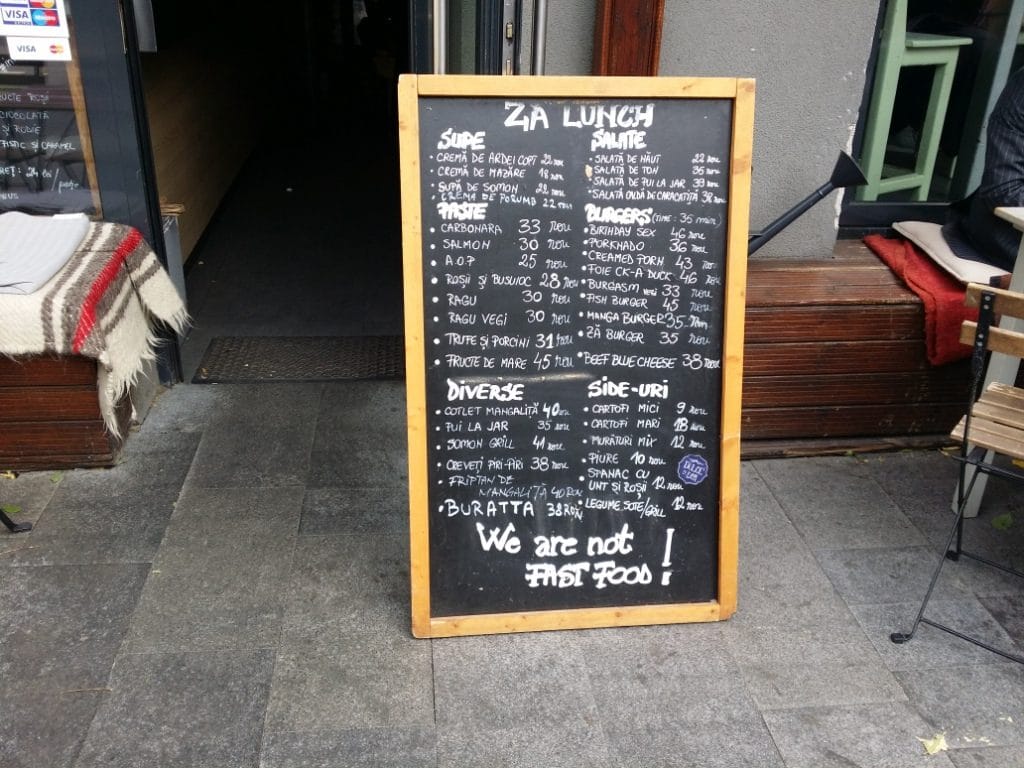 VISA
VISA
CIOCOLATĂ
ȘI RODIE
FISTIC SI CARAMEL
ZA LUNCH
SUPE
• CREMĂ DE ARDEI COPT 22 RON
• CREMĂ DE MAZĂRE 18 RON
• SUPĂ DE SOMON 22 RON
• CREMA DE PORUMB 22 RON
PASTE
• CARBONARA 33 RON
• SALMON 30 RON
• A.O.P 25 RON
• ROSII ȘI BUSUIOC 28 RON
• RAGU 30 RON
• RAGU VEGI 30 RON
• TRUFE ȘI PORCINI 31 RON
• FRUCTE DE MARE 45 RON
DIVERSE
• COTLET MANGALITĂ 40 RON
• PUI LA JAR 35 RON
• SOMON GRILL 41 RON
• CREVEȚI PIRI-PIRI 38 RON
• FRIPTAN DE
MANGALIȚĂ 40 RON
• BURATTA 38 RON
SALATE
• SALATĂ DE NĂUT 22 RON
• SALATĂ DE TON 35 RON
• SALATĂ DE PUI LA JAR 39 RON
• SALATĂ CALDĂ DE CARACATIȚĂ 38 RON
BURGERS (TIME: 35 min)
• BIRTHDAY SEX 46 RON
• PORKHADO 36 RON
• CREAMED PORN 43 RON
• FOIE CK-A DUCK 46 RON
• BURGASM VEGI 33 RON
• FISH BURGER 45 RON
• MANGA BURGER 35 RON
• ZĂ BURGER 35 RON
• BEEF BLUE CHEESE 38 RON
SIDE-URI
• CARTOFI MICI 9 RON
• CARTOFI MARI 18 RON
• MURĂTURI MIX 12 RON
• PIURE 10 RON
• SPANAC CU
UNT ȘI ROȘII 12 RON
• LEGUME SOTE/GRILL 12 RON
We are not
FAST FOOD!